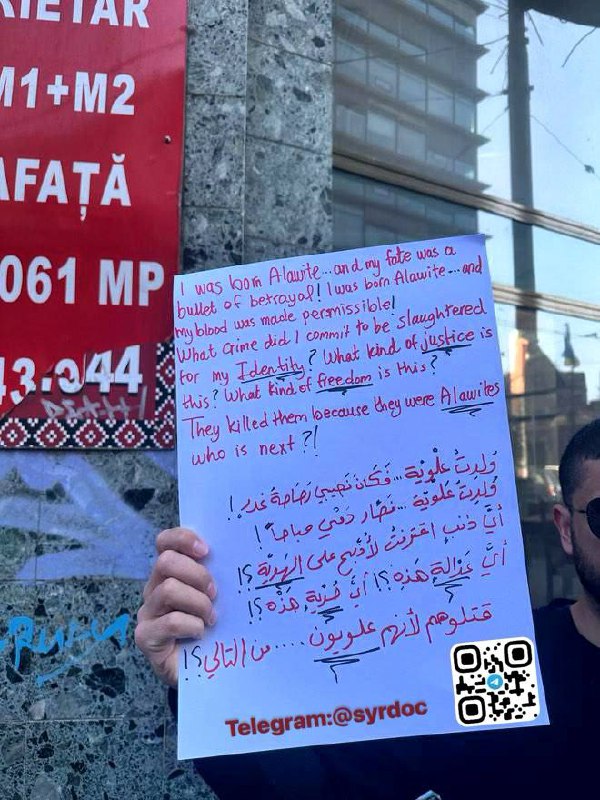 RIETAR
M1+M2
AFAȚĂ
061 MP
43.044
I was born Alawite...and my fate was a
bullet of betrayal! I was born Alawite...and
my blood was made permissible!
What crime did I commit to be slaughtered
for my Identity? What kind of justice is
this? What kind of freedom is this?
They killed them because they were Alawites
who is next?!
وُلِدتُ عَلَوِيَّة... فَكَانَ نَصِيبِي رَصَاصَةُ غَدر!
وُلِدتُ عَلَوِيَّة... فَصَار دَمِي مباحاً!
أيَّ ذنبٍ اقترفتُ لأُذبح على الهَوِيَّة؟!
أيَّ عَدَالَةٍ هَذِهِ؟! أيَّ حُرِيةٍ هَذه؟!
قتلوهم لأنهم علويون.... من التالي؟!
Telegram:@syrdoc